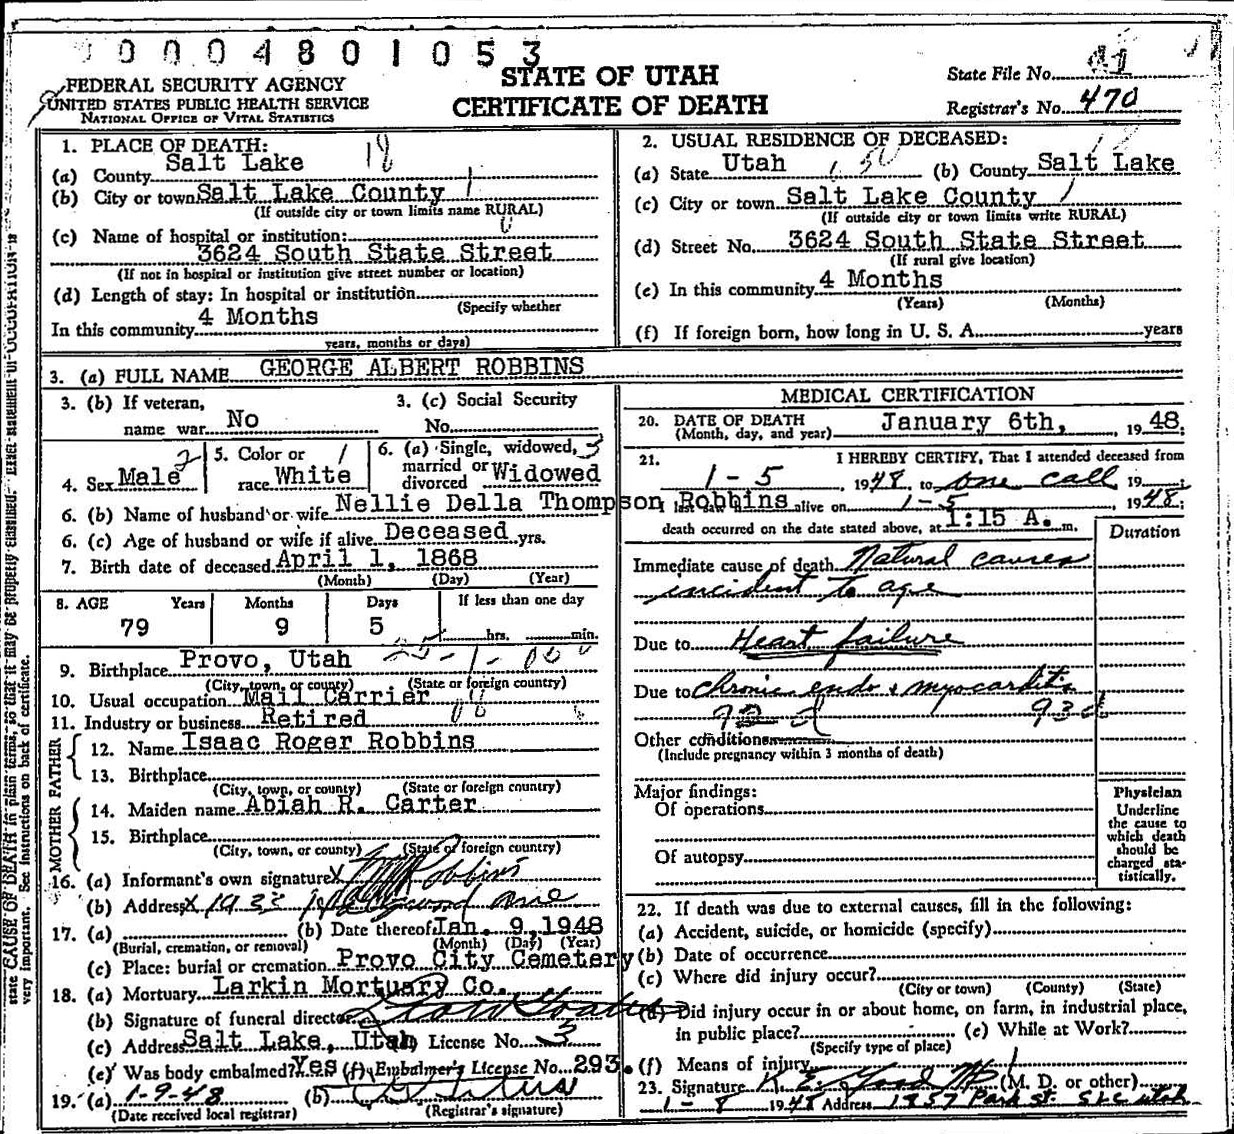 0 0 0 4 8 0 1 0 5 3
STATE OF UTAH
CERTIFICATE OF DEATH
FEDERAL SECURITY AGENCY
UNITED STATES PUBLIC HEALTH SERVICE
NATIONAL OFFICE OF VITAL STATISTICS
State File No.
Registrar's No. 470
1. PLACE OF DEATH:
(a) County Salt Lake 18
(b) City or town Salt Lake County 1
(If outside city or town limits name RURAL)
(c) Name of hospital or institution:
3624 South State Street
(If not in hospital or institution give street number or location)
(d) Length of stay: In hospital or institution
(Specify whether
In this community 4 Months
years, months or days)
2. USUAL RESIDENCE OF DECEASED:
(a) State Utah (b) County Salt Lake
(c) City or town Salt Lake County 1
(If outside city or town limits write RURAL)
(d) Street No. 3624 South State Street
(If rural give location)
(e) In this community 4 Months
(Years) (Months)
(f) If foreign born, how long in U. S. A. years
3. (a) FULL NAME GEORGE ALBERT ROBBINS
3. (b) If veteran, name war No
3. (c) Social Security No.
4. Sex Male 2
5. Color or race White 1
6. (a) Single, widowed, married or divorced Widowed 3
6. (b) Name of husband or wife Nellie Della Thompson Robbins
6. (c) Age of husband or wife if alive Deceased yrs.
7. Birth date of deceased April 1, 1868
(Month) (Day) (Year)
8. AGE Years Months Days If less than one day
79 9 5 hrs. min.
9. Birthplace Provo, Utah
(City, town, or county) (State or foreign country)
10. Usual occupation Mail Carrier
11. Industry or business Retired
FATHER
12. Name Isaac Roger Robbins
13. Birthplace
(City, town, or county) (State or foreign country)
MOTHER
14. Maiden name Abiah R. Carter
15. Birthplace
(City, town, or county) (State or foreign country)
16. (a) Informant's own signature X Robbins
(b) Address X 1933 Ave
17. (a) (b) Date thereof Jan. 9, 1948
(Burial, cremation, or removal) (Month) (Day) (Year)
(c) Place: burial or cremation Provo City Cemetery
18. (a) Mortuary Larkin Mortuary Co.
(b) Signature of funeral director
(c) Address Salt Lake, Utah License No. 3
(e) Was body embalmed? Yes (f) Embalmer's License No. 293.
19. (a) 1-9-48 (b)
(Date received local registrar) (Registrar's signature)
MEDICAL CERTIFICATION
20. DATE OF DEATH (Month, day, and year) January 6th, 1948;
21. I HEREBY CERTIFY, That I attended deceased from
1-5 1948, to one call 19
I last saw h alive on 1-5 1948;
death occurred on the date stated above, at 1:15 A. m.
Duration
Immediate cause of death Natural causes
incident to age
Due to Heart failure
Due to Chronic endo & myocarditis
93 d
Other conditions
(Include pregnancy within 3 months of death)
Major findings:
Of operations
Of autopsy
Physician
Underline the cause to which death should be charged statistically.
22. If death was due to external causes, fill in the following:
(a) Accident, suicide, or homicide (specify)
(b) Date of occurrence
(c) Where did injury occur?
(City or town) (County) (State)
(d) Did injury occur in or about home, on farm, in industrial place,
in public place? (e) While at Work?
(Specify type of place)
(f) Means of injury
23. Signature (M. D. or other)
1-8 1948 Address 1857 Park St. SLC Utah
state CAUSE OF DEATH in plain terms, so that it may be properly classified.
very important. See instructions on back of certificate.